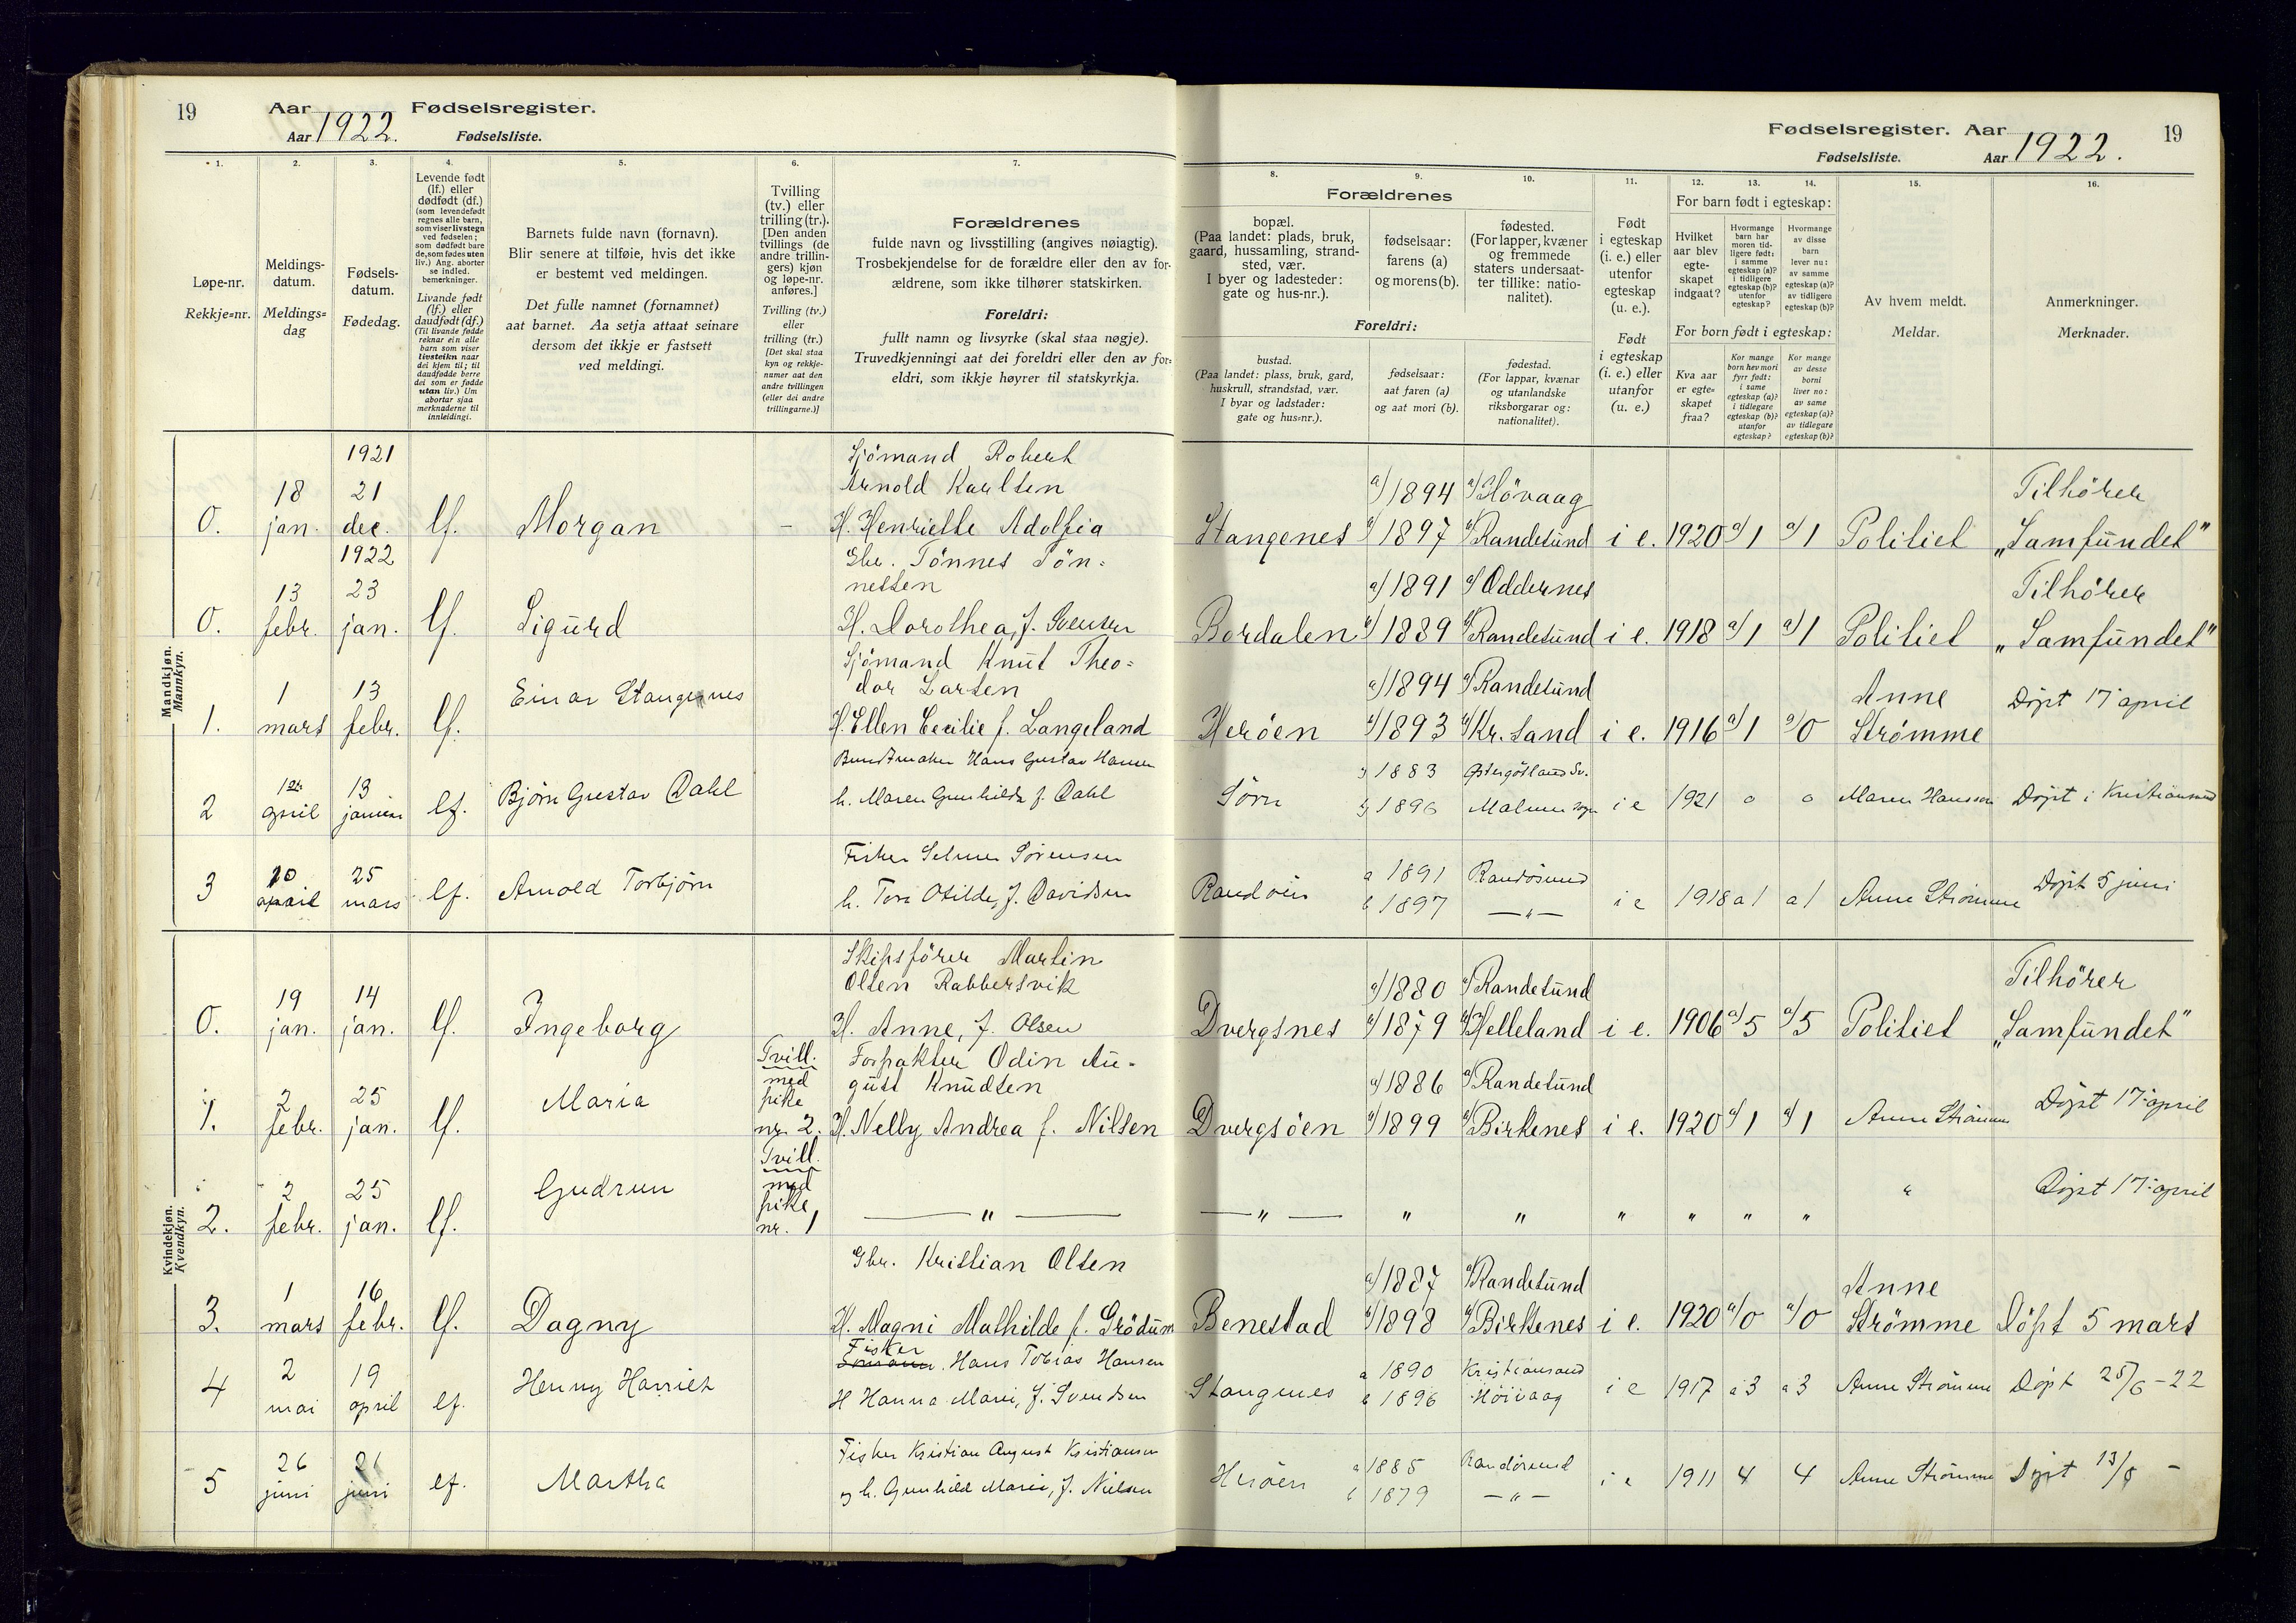 19 Aar Fødselsregister.
Aar 1922. Fødselsliste.
1. 2. 3. 4. 5. 6. 7.
Løpe-nr.
Rekkje-nr.
Meldings-
datum.
Meldings-
dag
Fødsels-
datum.
Fødedag.
Levende født
(lf.) eller
dødfødt (df.)
(som levendefødt
regnes alle barn,
som viser livstegn
ved fødselen;
som dødfødt bare
de, som fødes uten
liv.) Ang. aborter
se indled.
bemerkninger.
Livande født
(lf.) eller
daudfødt (df.)
(Til livande fødde
reknar ein alle
barn som viser
livsteikn naar
dei kjem til; til
daudfødde berre
dei som er fødde
utan liv.) Um
abortar sjaa
merknaderne til
innleidingi.
Barnets fulde navn (fornavn).
Blir senere at tilføie, hvis det ikke
er bestemt ved meldingen.
Det fulle namnet (fornamnet)
aat barnet. Aa setja attaat seinare
dersom det ikkje er fastsett
ved meldingi.
Tvilling
(tv.) eller
trilling (tr.).
[Den anden
tvillings (de
andre trillin-
gers) kjøn
og løpe-nr.
anføres.]
Tvilling (tv.)
eller
trilling (tr.)
[Det skal staa
kyn og rekkje-
numer aat den
andre tvillingen
(eller dei andre
trillingarne.)]
Forældrenes
fulde navn og livsstilling (angives nøiagtig).
Trosbekjendelse for de forældre eller den av for-
ældrene, som ikke tilhører statskirken.
Foreldri:
fullt namn og livsyrke (skal staa nøgje).
Truvedkjenningi aat dei foreldri eller den av for-
eldri, som ikkje høyrer til statskyrkja.
Mandkjøn.
Mannkyn.
0. 18 jan. 1921 21 dec. lf. Morgan -
Sjömand Robert
Arnold Karlsen
H. Henriette Adolfia
0. 13 febr. 1922 23 jan. lf. Sigurd
Gbr. Tönnes Tön-
nessen
H. Dorothea, f. Svensen
1. 1 mars 13 febr. lf. Einar Stangenes
Sjömand Knut Theo-
dor Larsen
H. Ellen Cecilie f. Langeland
2 april 13 januar lf. Bjørn Gustav Dahl
Buntmaker Hans Gustav Hansen
h. Maren Gunhilda f. Dahl
3 20 april 25 mars lf. Arnold Torbjørn
Fisker Selmer Sörensen
h. Tora Otilde, f. Davidsen
Kvindekjøn.
Kvendkyn.
0. 19 jan. 14 jan. lf. Ingeborg
Skipsförer Martin
Olsen Rabbersvik
H. Anne, f. Olsen
1. 2 febr. 25 jan. lf. Maria
Tvill.
med
pike
nr. 2.
Forpakter Odin Au-
gust Knudsen
H. Nelly Andrea f. Nilsen
2. 2 febr. 25 jan. lf. Gudrun
Tvill.
med
pike
nr. 1
— " —
3. 1 mars 16 febr. lf. Dagny
Gbr. Kristian Olsen
H. Magni Mathilde f. Grödum
4 2 mai 19 april lf. Henny Harriet
Fisker
Hans Tobias Hansen
H Hanna Marie, f. Svendsen
5 26 juni 21 juni lf. Martha
Fisker Kristian August Kristiansen
og h. Gunhild Marie, f. Nielsen
Fødselsregister. Aar 19
Fødselsliste. Aar 1922.
8. 9. 10. 11. 12. 13. 14. 15. 16.
Forældrenes
bopæl.
(Paa landet: plads, bruk,
gaard, hussamling, strand-
sted, vær.
I byer og ladesteder:
gate og hus-nr.).
fødselsaar:
farens (a)
og morens (b).
fødested.
(For lapper, kvæner
og fremmede
staters undersaat-
ter tillike: natio-
nalitet).
Foreldri:
bustad.
(Paa landet: plass, bruk, gard,
huskrull, strandstad, vær.
I byar og ladstader:
gate og hus-nr.).
fødselsaar:
aat faren (a)
og aat mori (b).
fødestad.
(For lappar, kvænar
og utanlandske
riksborgarar og:
nationalitet).
Født
i egteskap
(i. e.) eller
utenfor
egteskap
(u. e.).
Født
i egteskap
(i. e.) eller
utanfor
(u. e.)
For barn født i egteskap:
Hvilket
aar blev
egte-
skapet
indgaat?
Hvormange
barn har
moren tid-
ligere født:
i samme
egteskap (a)?
i tidligere
egteskap (b)?
utenfor
egteskap?
Hvormange
av disse
barn
lever nu:
av samme
egteskap (a)?
av tidligere
egteskap (b)?
For born født i egteskap:
Kva aar
er egte-
skapet
fraa?
Kor mange
born hev mori
fyrr født:
i same
egteskap (a)?
i tidlegare
egteskap (b)?
utanfor
egteskap?
Kor mange
av desse
borni
liver no:
av same
egteskap (a)?
av tidlegare
egteskap (b)?
Av hvem meldt.
Meldar.
Anmerkninger.
Merknader.
Stangenes a) 1894 b) 1897 a) Hövaag b) Randesund i e. 1920 a) 1 a) 1 Politiet Tilhörer „Samfundet"
Bordalen a) 1891 b) 1889 a) Oddernes b) Randesund i e. 1918 a) 1 a) 1 Politiet Tilhörer „Samfundet"
Heröen a) 1894 b) 1893 a) Randesund b) Kr.sand i e. 1916 a) 1 a) 0 Anne Strømme Döpt 17 april
Sørn 1883 1896 Østergötland Sv. i e 1921 0 0 Maren Hanssen Döpt i Kristiansund
Randöen a 1891 b 1897 Randösund — " — i e 1918 a 1 a 1 Anne Strömme Döpt 5 juni
Dvergsnes a) 1880 b) 1879 a) Randesund b) Helleland i e. 1906 a) 5 a) 5 Politiet Tilhörer „Samfundet"
Dvergsöen a) 1886 b) 1899 a) Randesund b) Birkenes i e. 1920 a) 1 a) 1 Anne Strömme Döpt 17 april
— " — " " " " " " " Döpt 17 april
Benestad a) 1887 b) 1898 a) Randesund b) Birkenes i e. 1920 a) 0 a) 0 Anne Strømme Döpt 5 mars
Stangenes a 1890 b 1896 Kristiansand Höivaag i e 1917 a 3 a 3 Anne Strömme Döpt 25/6 - 22
Heröen a 1885 b 1879 Randösund — " — i e 1911 4 4 Anne Strömme Döpt 13/8 -